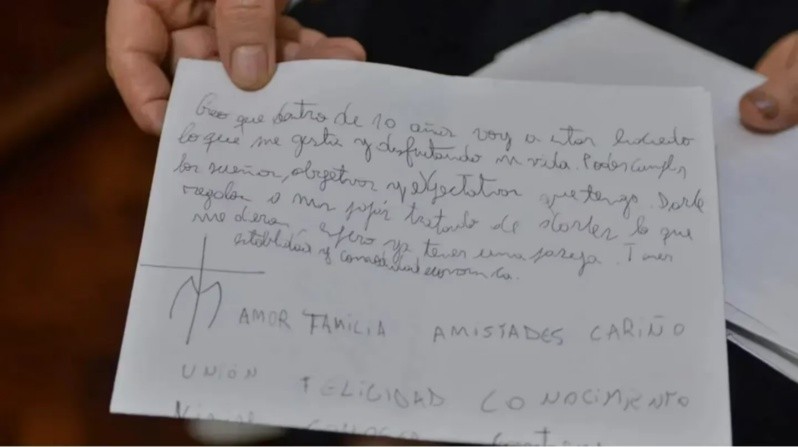 Creo que dentro de 10 años voy a estar haciendo
lo que me gusta y disfrutando mi vida. Poder cumplir
los sueños, objetivos y expectativas que tengo. Darle
regalos a mis papás tratando de darles lo que
me dieron, espero ya tener una pareja. Tener
estabilidad y comodidad economica.
AMOR FAMILIA AMISTADES CARIÑO
UNIÓN FELICIDAD CONOCIMIENTO